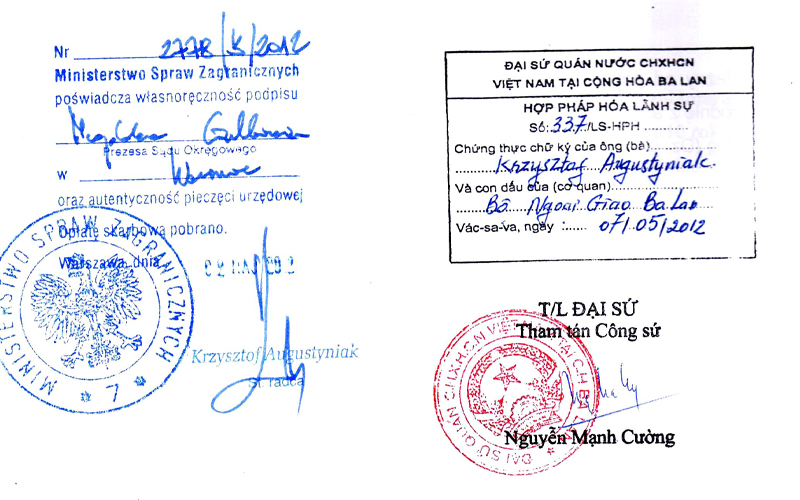 Nr 2778/K/2012
Ministerstwo Spraw Zagranicznych
poświadcza własnoręczność podpisu
Prezesa Sądu Okręgowego
w
oraz autentyczność pieczęci urzędowej
Opłatę skarbową pobrano.
Warszawa, dnia
Krzysztof Augustyniak
St. radca
MINISTERSTWO SPRAW ZAGRANICZNYCH
* 7 *
ĐẠI SỨ QUÁN NƯỚC CHXHCN
VIỆT NAM TẠI CỘNG HÒA BA LAN
HỢP PHÁP HÓA LÃNH SỰ
Số: 337/LS-HPH
Chứng thực chữ ký của ông (bà)
Krzysztof Augustyniak
Và con dấu của (cơ quan)
Bộ Ngoại Giao Ba Lan
Vác-sa-va, ngày : 07/05/2012
T/L ĐẠI SỨ
Tham tán Công sứ
ĐẠI SỨ QUÁN CHXHCN VIỆT NAM TẠI C.H BA LAN
Nguyễn Mạnh Cường